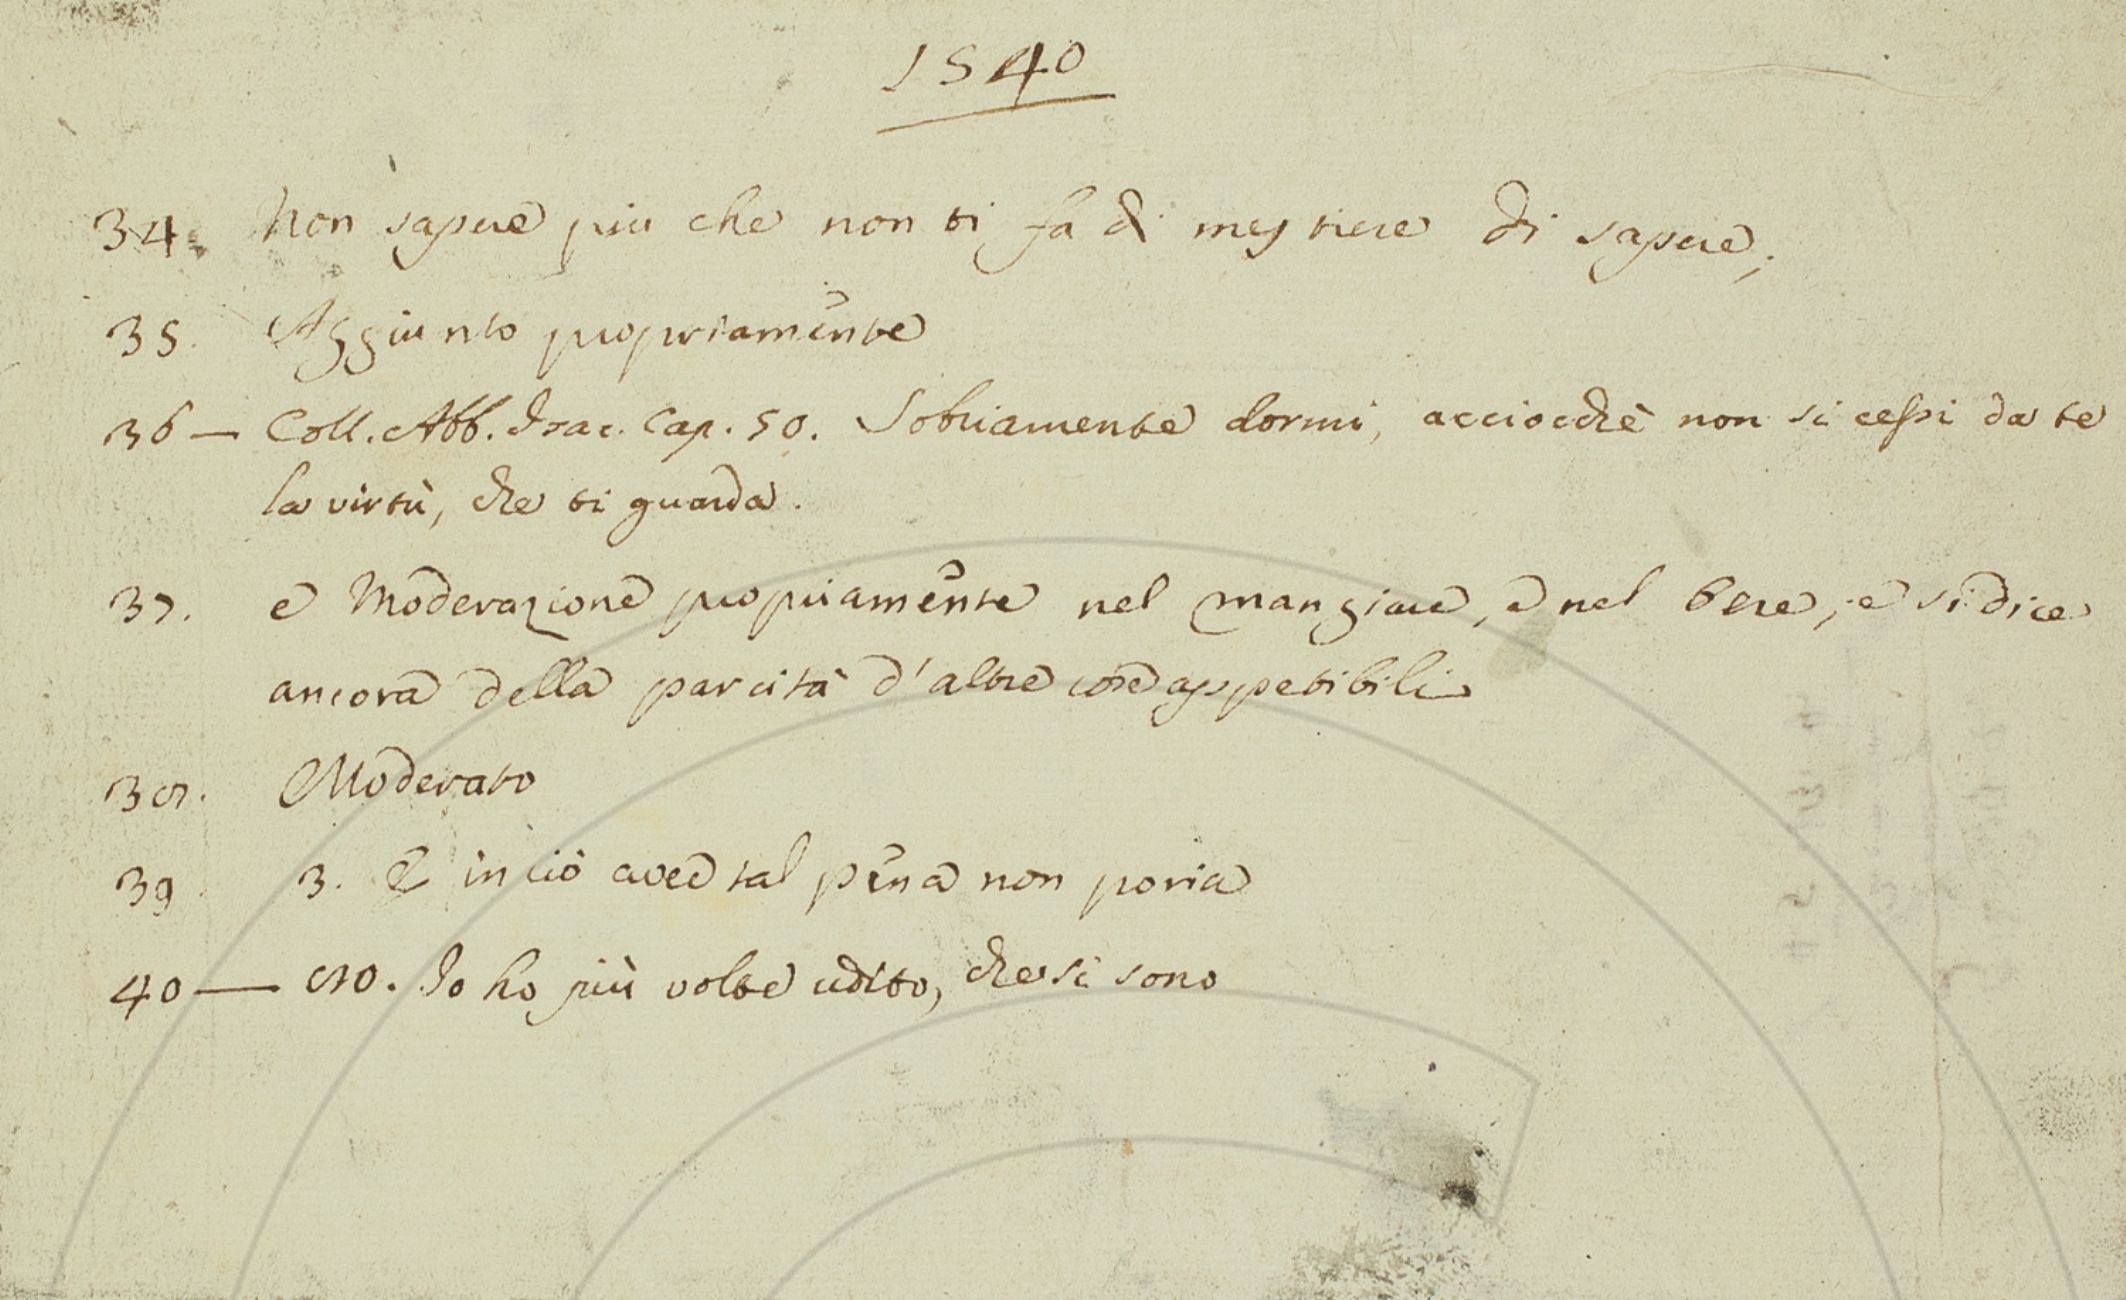 1540
34. Non sapere piu che non ti fa di mestiere di sapere;
35. Aggiunto propriamẽnte
36 — Coll. Abb. Isac. Cap. 50. Sobriamente dormi, acciocchè non si cessi da te
la virtù, che ti guarda.
37. e Moderazione propriamẽnte nel mangiare, e nel bere, e si dice
ancora della parcità d'altre cose appetibili
38. Moderato
39 3. E in ciò aver tal pẽna non poria
40 — 10. Io ho più volte udito, che si sono